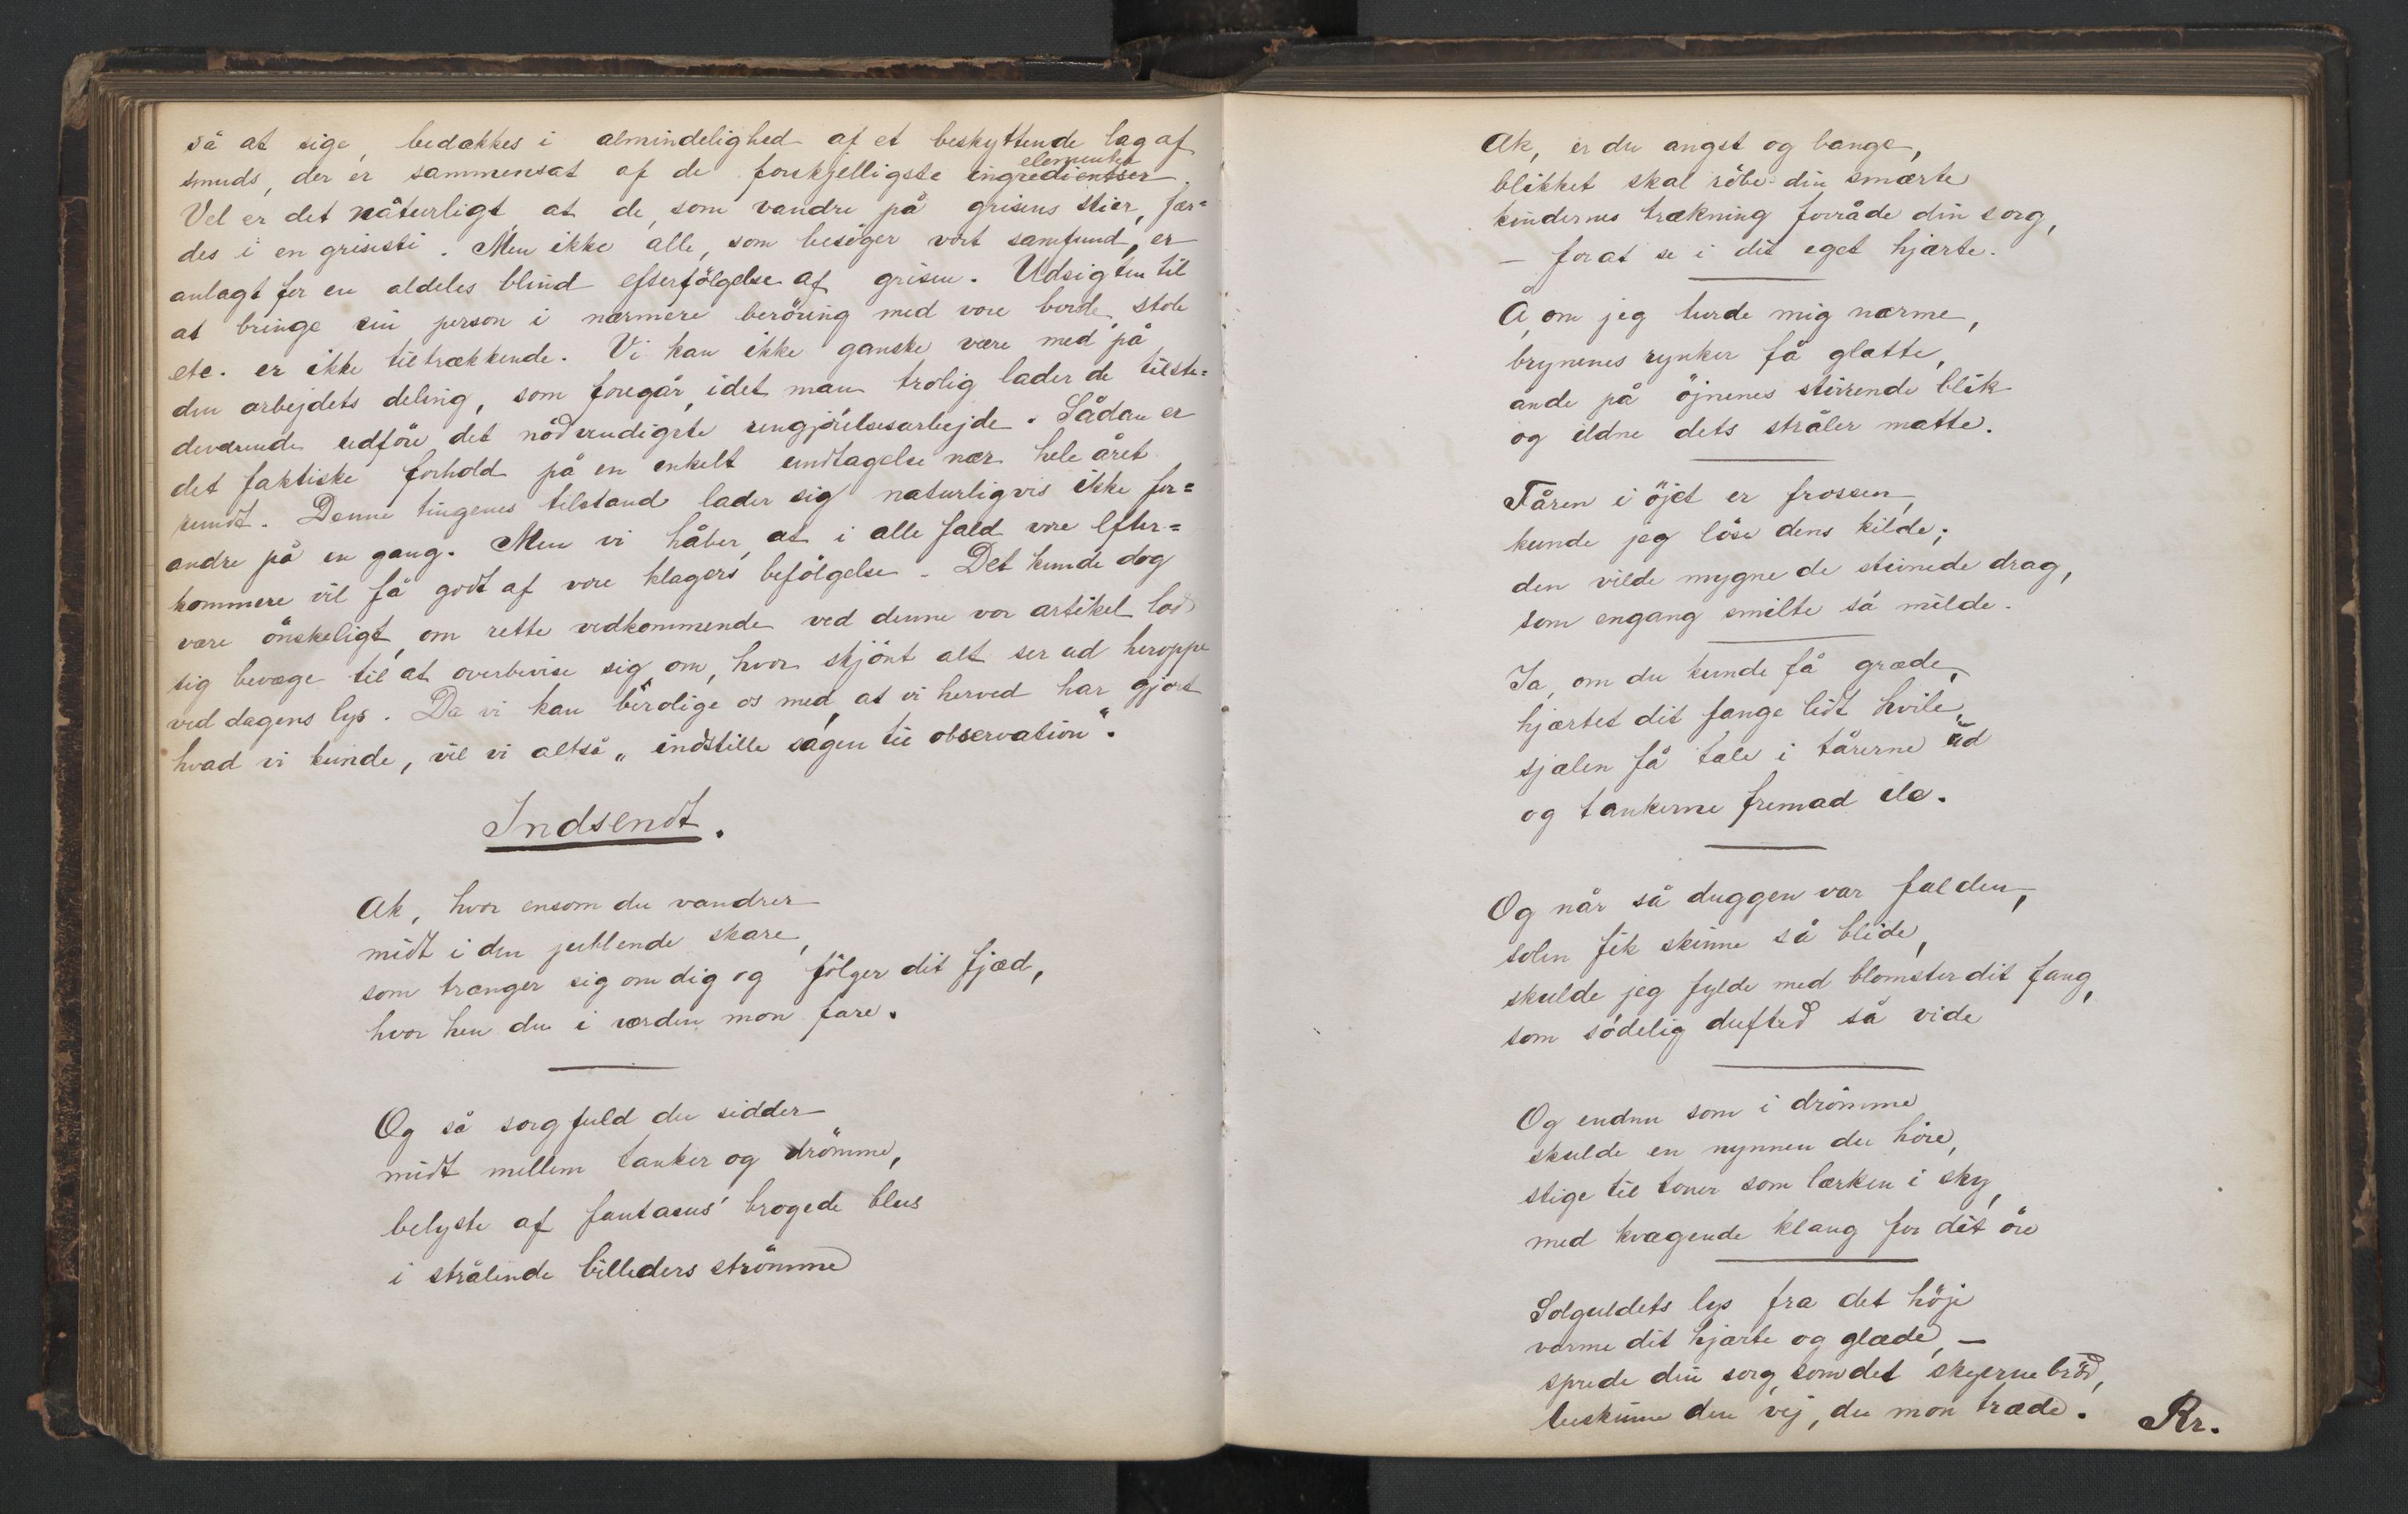 så at sige, bedækkes i almindelighed af et beskyttende lag af
elementer
smuds, der er sammensat af de forskjelligste ingredientser.
Vel er det naturligt at de, som vandre på grisens stier, fær=
des i en grisesti. Men ikke alle, som besøger vort samfund, er
anlagt for en aldeles blind efterfölgelse af grisen. Udsigten til
at bringe sin person i nærmere beröring med vore borde, stole
etc. er ikke tiltrækkende. Vi kan ikke ganske være med på
den arbejdets deling, som foregår, idet man trolig lader de tilste=
deværende udföre det nödvendigste rengjörelsesarbejde. Sådan er
det faktiske forhold på en enkelt undtagelse nær hele året
rundt. Denne tingenes tilstand lader sig naturligvis ikke for=
andre på en gang. Men vi håber, at i alle fald vore efter=
kommere vil få godt af vore klagers befölgelse. Det kunde dog
være önskeligt, om rette vedkommende ved denne vor artikel lod
sig bevæge til at overbevise sig om, hvor skjönt alt ser ud heroppe
ved dagens lys. Da vi kan berolige os med, at vi herved har gjort
hvad vi kunde, vil vi altså „indstille sagen til observation".
Indsendt.
Ak, hvor ensom du vandrer
midt i den jublende skare,
som trænger sig om dig og fölger dit fjæd,
hvor hen du i verden mon fare.
Og så sorgfuld du sidder
midt mellem tanker og drömme,
belyste af fantasus' brogede blus
i strålende billeders strömme
Ak, er du angst og bange,
blikket skal röbe din smærte
kindernes trækning forråde din sorg,
- for at se i dit eget hjærte.
Å, om jeg turde mig nærme,
brynenes rynker få glatte,
ånde på öjnenes stirrende blik
og ildne dets stråler matte.
Tåren i öjet er frossen,
kunde jeg löse dens kilde;
den vilde mygne de stivnede drag,
som engang smilte så milde.
Ja, om du kunde få græde,
hjærtet dit fange lidt hvile,
sjælen få tale i tårerne ud
og tankerne fremad ile.
Og når så duggen var falden,
solen fik skinne så blide,
skulde jeg fylde med blomster dit fang,
som södelig dufted så vide
Og endnu som i drömme
skulde en nynnen du höre,
stige til toner som lærken i sky,
med kvægende klang for dit öre
Solguldets lys fra det höje
varme dit hjærte og glæde, —
sprede din sorg, som det skyerne bröd,
beskinne den vej, du mon træde.
Rr.